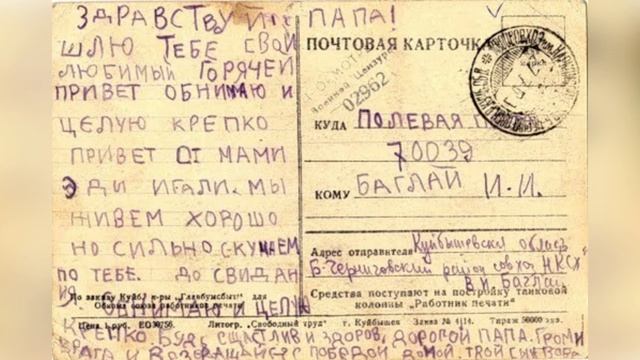 ЗДРАВСТВУЙ ПАПА!
ШЛЮ ТЕБЕ СВОЙ
ЛЮБИМЫЙ ГОРЯЧЕЙ
ПРИВЕТ ОБНИМАЮ И
ЦЕЛУЮ КРЕПКО
ПРИВЕТ ОТ МАМИ
ЭДИ И ГАЛИ. МЫ
ЖИВЕМ ХОРОШО
НО СИЛЬНО СКУЧАЕМ
ПО ТЕБЕ. ДО СВИДАН
ИЯ. ОБНИМАЮ И ЦЕЛУЮ
КРЕПКО БУДЬ СЩАСТЛИВ И ЗДОРОВ, ДОРОГОЙ ПАПА. ГРОМИ
ВРАГА И ВОЗВРАЩАЙСЯ С ПОБЕДОЙ ДОМОЙ ТВОЙ СЫН
По заказу Куйб. к-ры „Главбумсбыт" для
Цена 1 руб. ЕО30750. Литогр. „Свободный труд" г. Куйбышев Заказ № 4114. Тираж 50000
ПОЧТОВАЯ КАРТОЧКА
Военной Цензурой
02962
КУДА ПОЛЕВАЯ
70039
КОМУ БАГЛАЙ И.И.
Адрес отправителя Куйбышевская область
Б-Черниговский район совхоз НКСХ
В.И. Баглай
Средства поступают на постройку танковой
колонны „Работник печати"